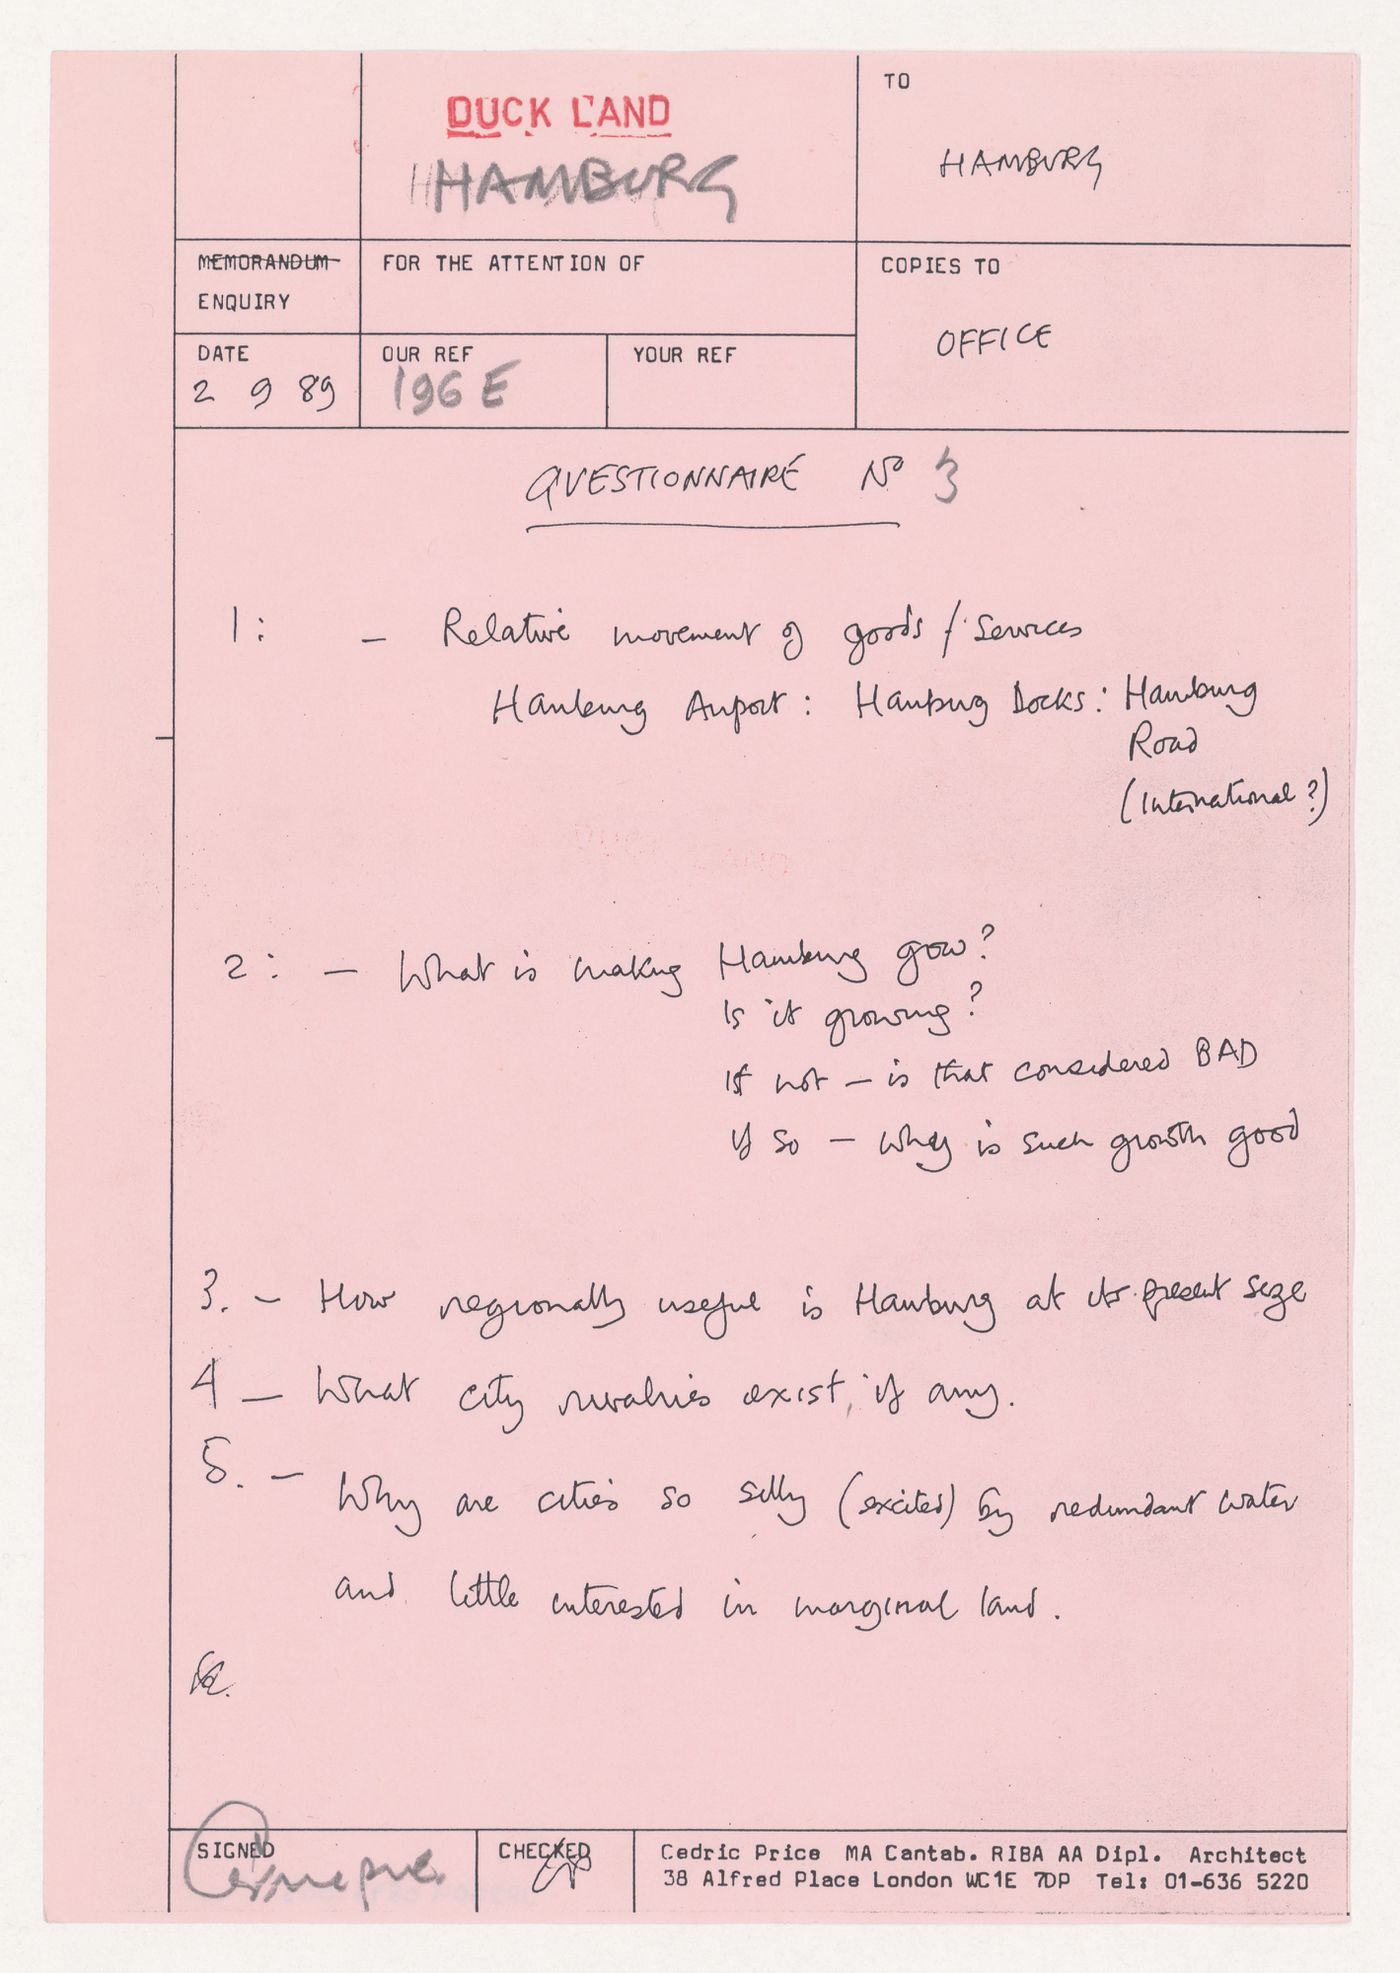 DUCK LAND
HAMBURG
TO
HAMBURG
MEMORANDUM
ENQUIRY
FOR THE ATTENTION OF
COPIES TO
OFFICE
DATE
2 9 89
OUR REF
196 E
YOUR REF
QUESTIONNAIRE No 3
1: - Relative movement of goods / services
Hamburg Airport: Hamburg Docks: Hamburg
Road
(International?)
2: - What is making Hamburg grow?
Is it growing?
If not - is that considered BAD
if so - why is such growth good
3. - How regionally useful is Hamburg at its present size
4 - What city rivalries exist, if any.
5. - Why are cities so silly (excited) by redundant water
and little interested in marginal land.
&c.
SIGNED
Cedric Price
CHECKED
CP
Cedric Price MA Cantab. RIBA AA Dipl. Architect
38 Alfred Place London WC1E 7DP Tel: 01-636 5220